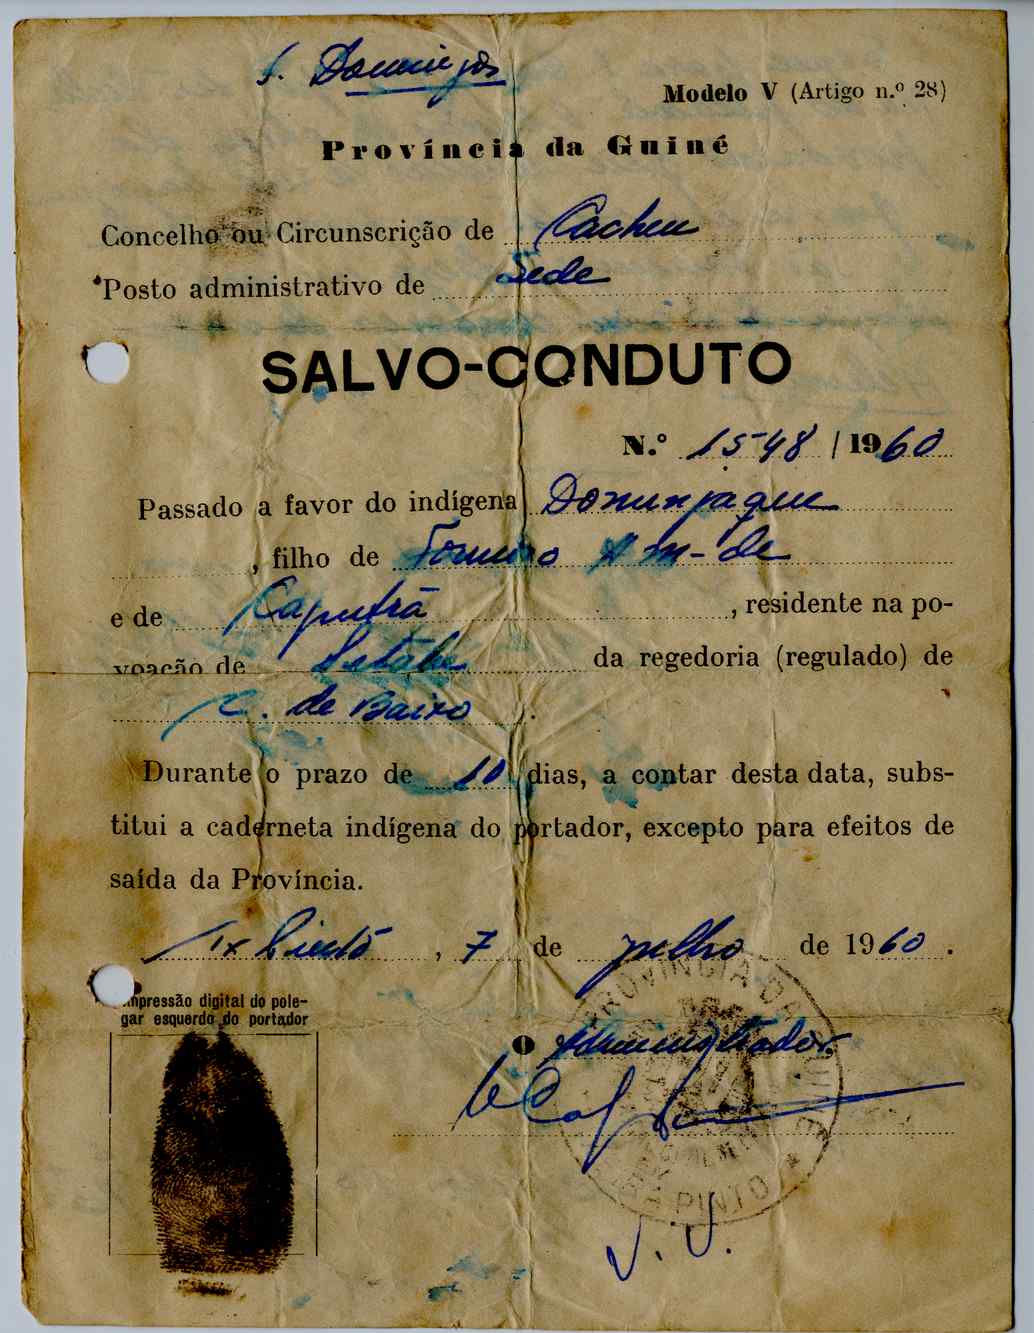 S. Domingos
Modelo V (Artigo n.º 28)
Província da Guiné
Concelho ou Circunscrição de Cacheu
Posto administrativo de Sede
SALVO-CONDUTO
N.º 1548 / 1960
Passado a favor do indígena
, filho de
e de , residente na po-
voação de da regedoria (regulado) de
C. de Baixo .
Durante o prazo de 10 dias, a contar desta data, subs-
titui a caderneta indígena do portador, excepto para efeitos de
saída da Província.
, 7 de julho de 1960.
Impressão digital do pole-
gar esquerdo do portador
O Administrador,
PROVÍNCIA DA GUINÉ
PINTO
V. V.